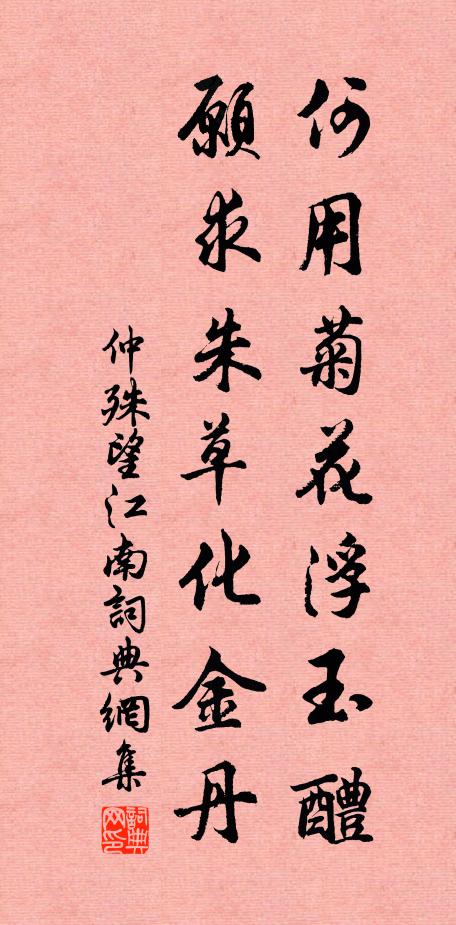 何用菊花浮玉醴
願求朱草化金丹
仲殊望江南詞典網集
詞典網印